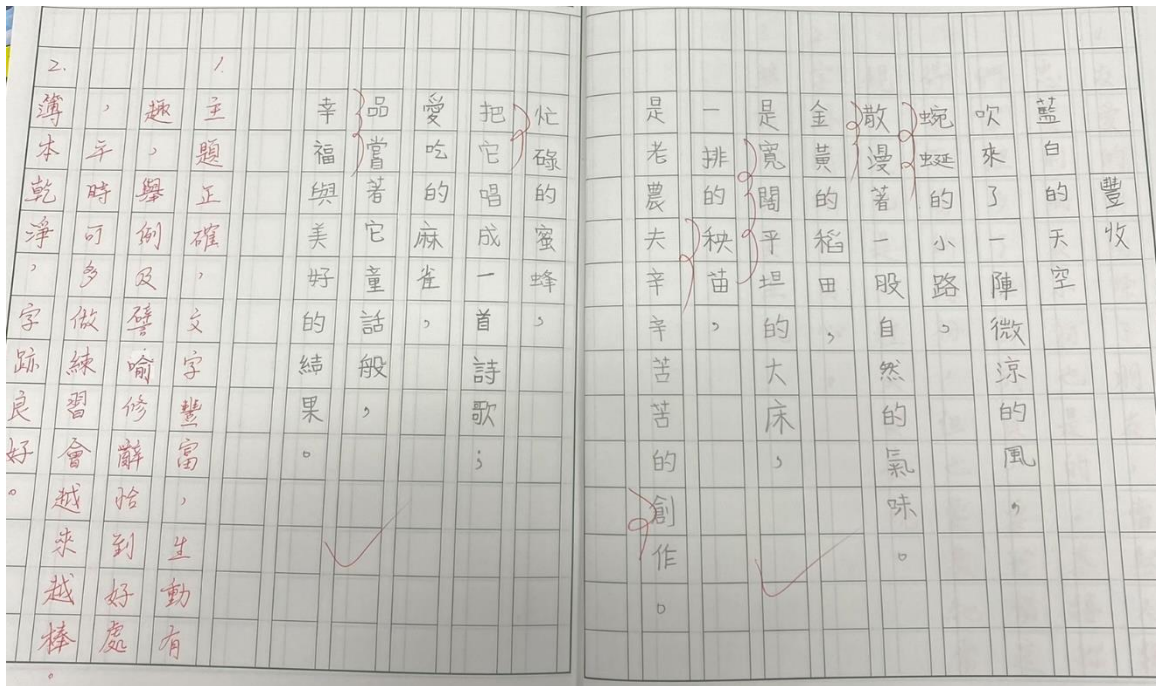 豐收
藍白的天空
吹來了一陣微涼的風,
蜿蜒的小路,
散漫著一股自然的氣味。
金黃的稻田,
是寬闊平坦的大床,
一排的秧苗,
是老農夫辛辛苦苦的創作。
忙碌的蜜蜂,
把它唱成一首詩歌;
愛吃的麻雀,
品嘗著它童話般,
幸福與美好的結果。
1.主題正確,文字豐富,生動有
趣,舉例及譬喻修辭恰到好處
,平時可多做練習會越來越棒。
2.簿本乾淨,字跡良好。